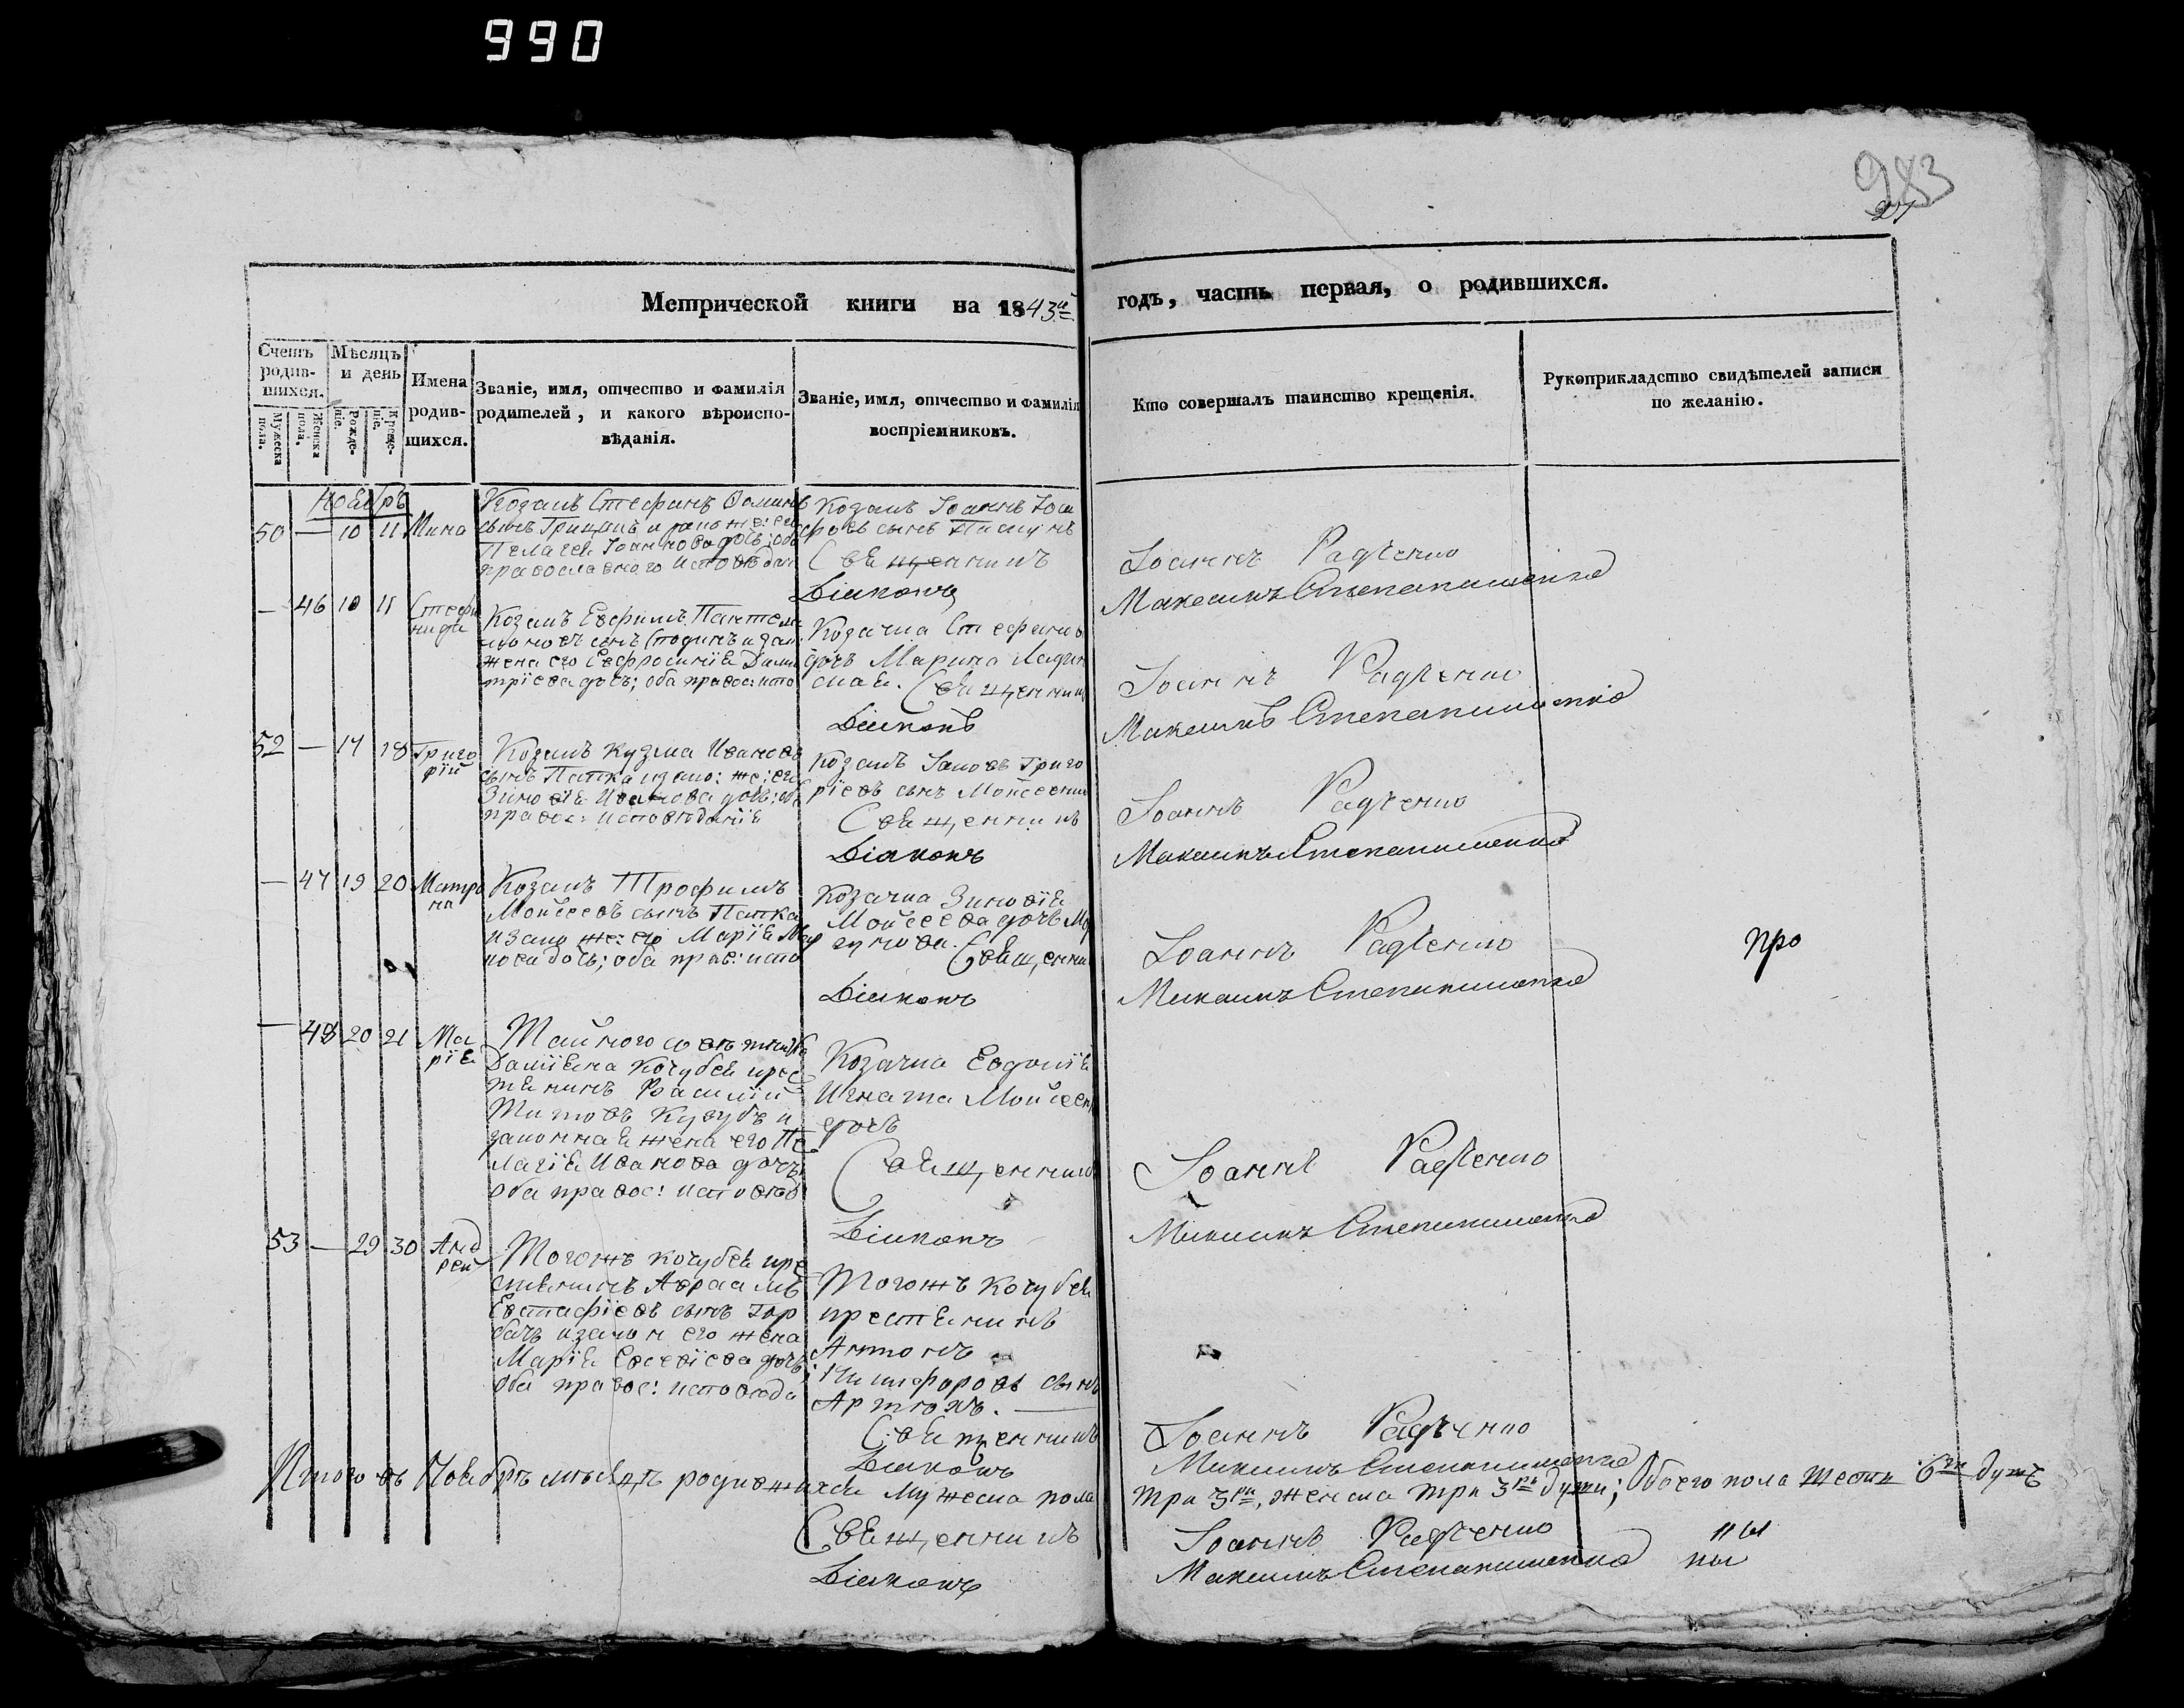 990
983
27
Метрической книги на 1843й годъ, часть первая, о родившихся.
Счетъ родив-шихся.
Мужеска пола.
Женска пола.
Мѣсяцъ и день
Рожде-ніе.
Креще-ніе.
Имена родив-шихся.
Званіе, имя, отчество и фамилія родителей, и какого вѣроиспо-вѣданія.
Званіе, имя, отчество и фамилія воспріемниковъ.
Кто совершалъ таинство крещенія.
Рукоприкладство свидѣтелей записи по желанію.
Ноябрь
50 — 10 11 Мина
Козакъ Стефанъ Ѳоминъ
сынъ Грицикъ и зако: же: его
Пелагея Іоаннова дочь; оба
православного исповѣдан
Козакъ Іоаннъ Іоси
фовъ сынъ
Священникъ Іоаннъ Радченко
Діаконъ Максимъ Степаниненко
— 46 10 11 Стефа
нида
Козакъ Евфимъ Пантели
моновъ сынъ и зак:
жена его Евфросинія Дими
тріева дочь; оба правос: испо
Козачка Стефанов
дочь Марина
ская. Священник Іоаннъ Радченко
Діаконъ Максимъ Степаниненко
52 — 17 18 Григо
рій
Козакъ Кузма Ивановъ
сынъ Папка и зако: же: его
Зиновія Иванова дочь; об
правос: исповѣданія
Козакъ Іаковъ Григо
ріевъ сынъ Мойсеенко
Священникъ Іоаннъ Радченко
Діаконъ Максимъ Степаниненко
— 47 19 20 Матро
на
Козакъ Трофимъ
Мойсеевъ сынъ Папка
и зако же: его Марія Мар
кова дочь; оба прав: испо
Козачка Зиновія
Мойсеева дочь
Священни Іоаннъ Радченко
про
Діаконъ Максимъ Степаниненко
— 48 20 21 Ма
рія
Тайного совѣтника
Даміяна Кочубея крес
тянинъ Василій
Титовъ Кузубъ и
законная жена его Пе
лагія Иванова дочь
оба правос: исповѣд
Козачка Евдокія
Игната Мойсеенк
дочь
Священникъ Іоаннъ Радченко
Діаконъ Максимъ Степаниненко
53 — 29 30 Анд
рей
Тогожъ Кочубея кре
стянинъ Авраамъ
Евстафіевъ сынъ Гор
бачъ и закон его жена
Марія Евсевіева дочь;
оба правос: исповѣда
Тогожъ Кочубея
крестянинъ
Антонъ
Никифоровъ сынъ
Артюхъ.
Священникъ Іоаннъ Радченко
Діаконъ Максимъ Степаниненко
Итого въ Ноябрѣ мѣсяцѣ родившихся мужеска пола три 3ри, женска три 3ри души; Обоего пола шесть 6ть душъ
Священникъ Іоаннъ Радченко
Діаконъ Максимъ Степаниненко